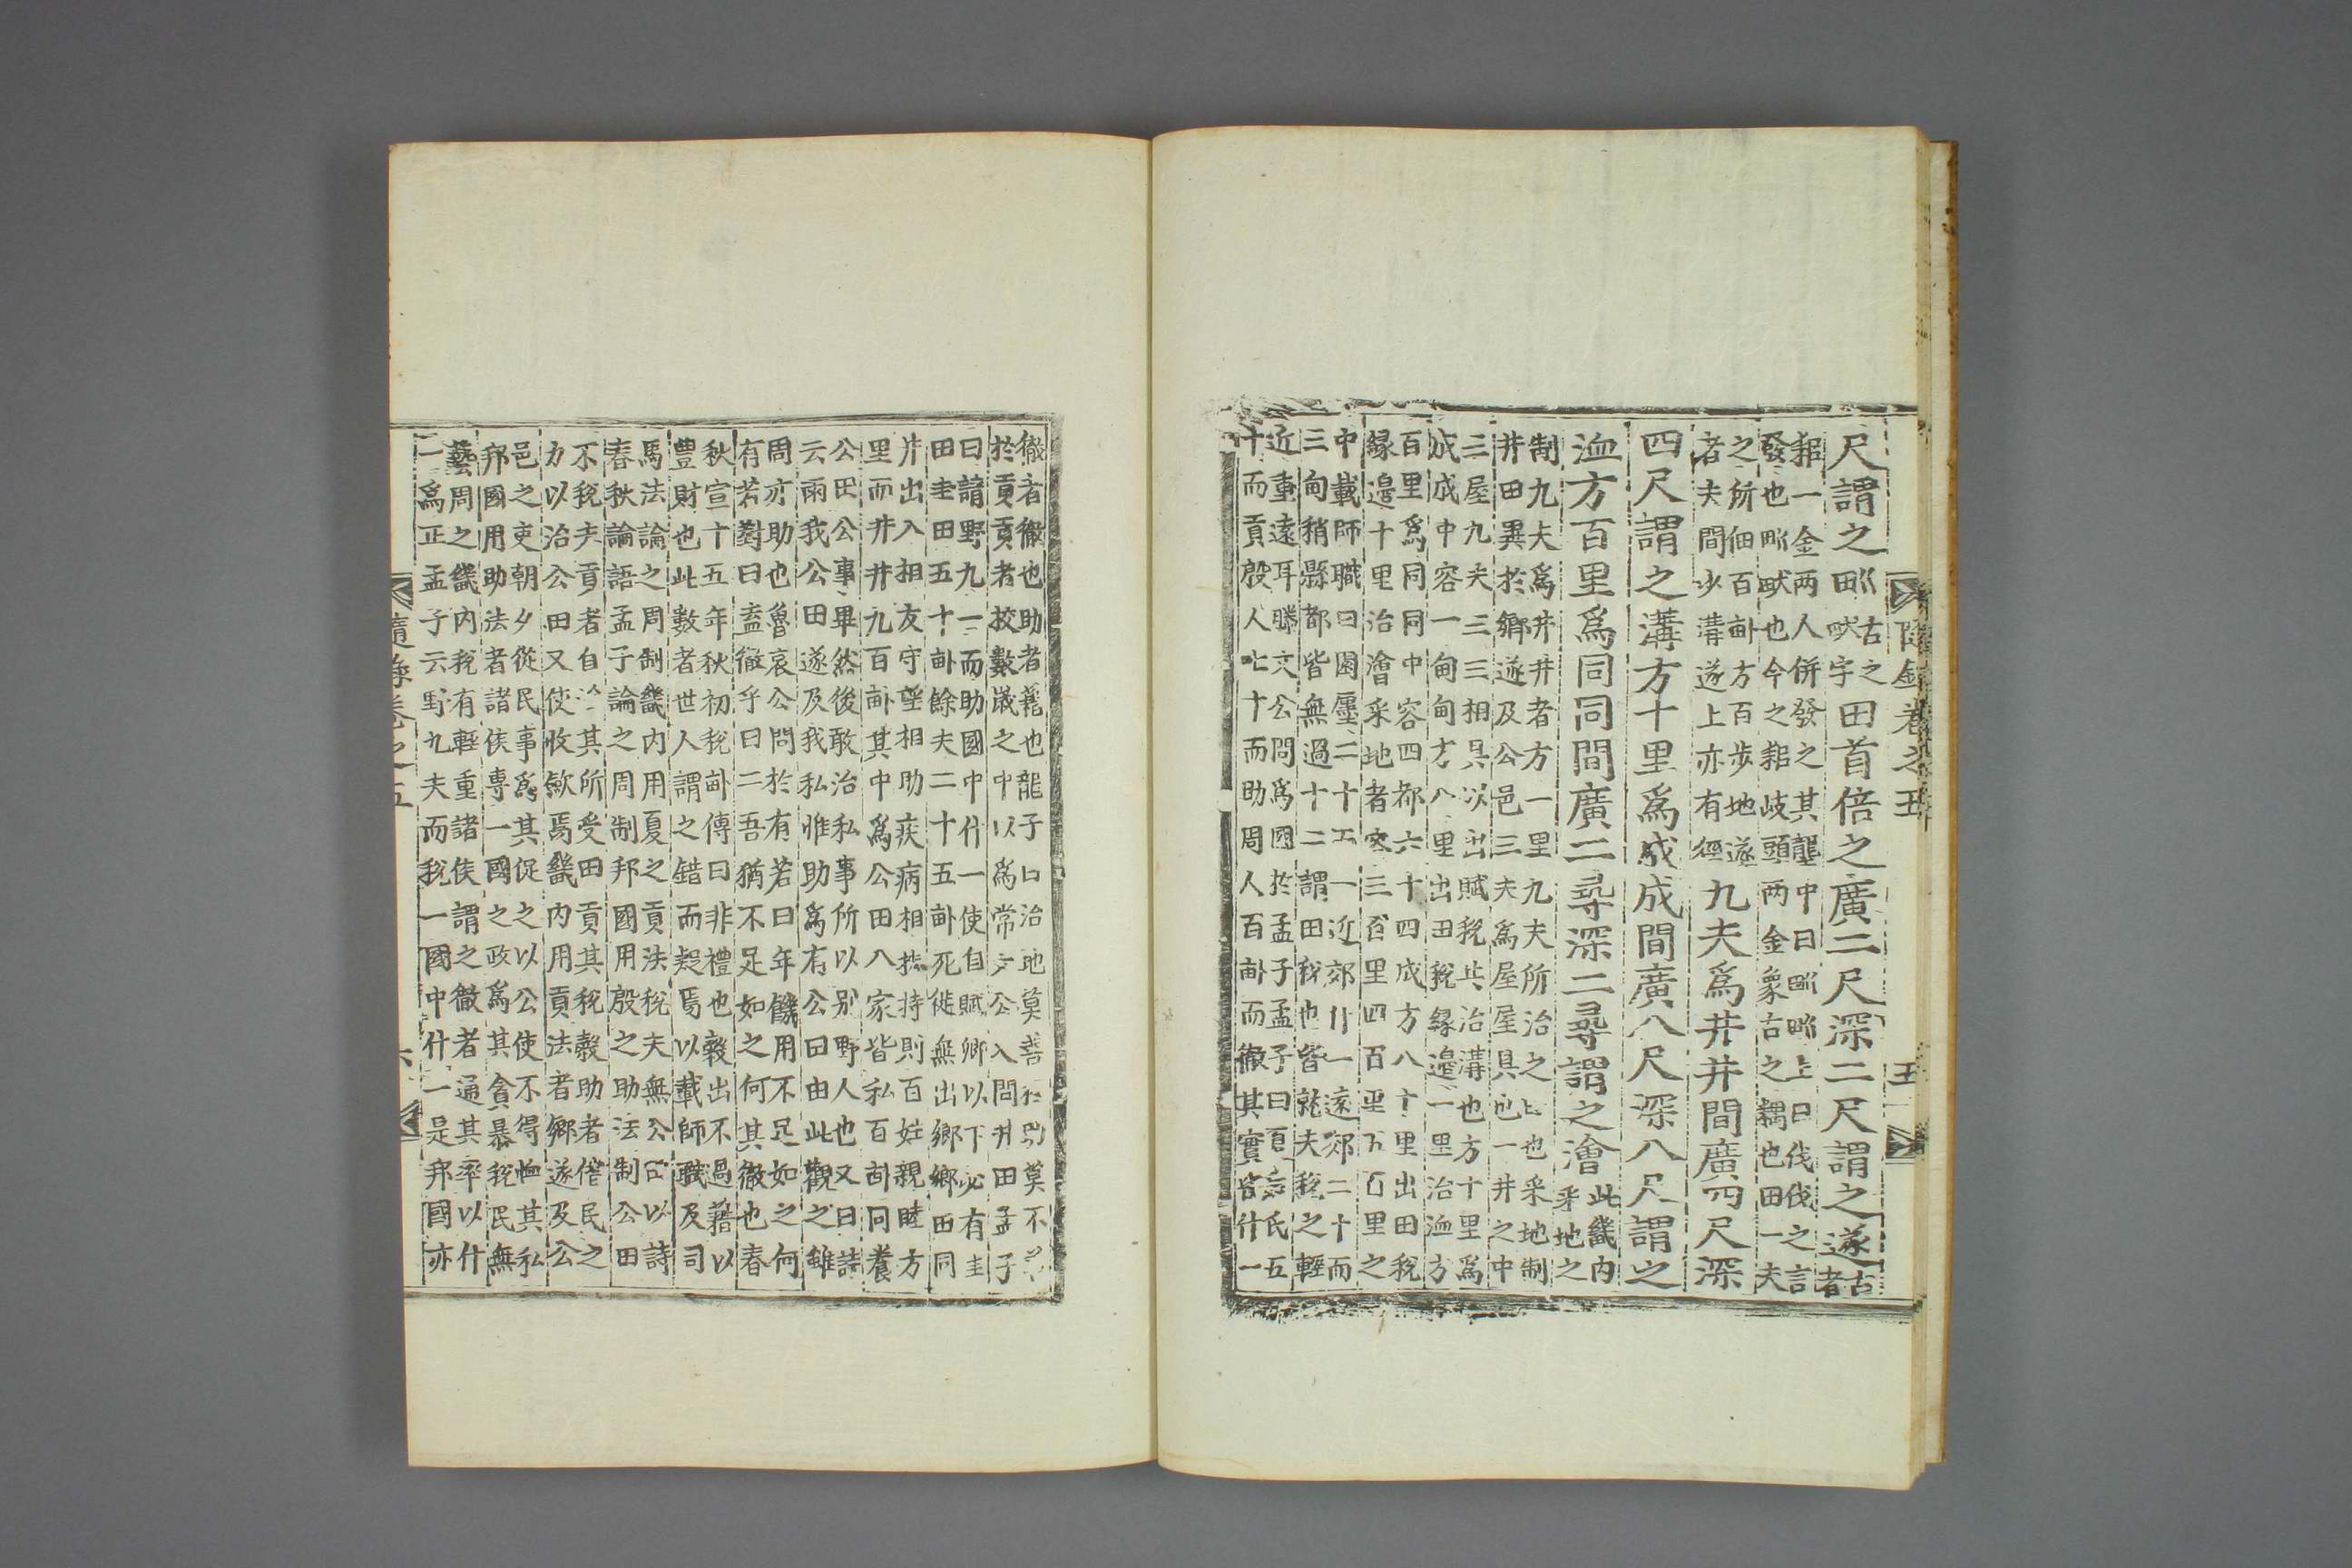 隨錄卷之五
五
尺謂之甽
古之
畎字
田首倍之廣二尺深二尺謂之遂
古
者
耜一金兩人併發之其壟中曰甽甽上曰伐伐之言
發也甽畎也今之耜岐頭兩金象古之耦也田一夫
之所佃百畝方百步地遂
者夫間小溝遂上亦有徑
九夫爲井井間廣四尺深
四尺謂之溝方十里爲成成間廣八尺深八尺謂之
洫方百里爲同同間廣二尋深二尋謂之澮
此畿内
采地之
制九夫爲井井者方一里九夫所治之田也采地制
井田異於鄉遂及公邑三夫爲屋屋具也一井之中
三屋九夫三三相具以出賦稅共治溝也方十里爲
成成中容一甸甸方八里出田稅緣邊一里治洫方
百里爲同同中容四都六十四成方八十里出田稅
緣邊十里治澮采地者容三百里四百里五百里之
中載師職曰園廛二十而一近郊什一遠郊二十而
三甸稍縣都皆無過十二謂田稅也皆就夫稅之輕
近重遠耳滕文公問爲國於孟子孟子曰夏后氏五
十而貢殷人七十而助周人百畝而徹其實皆什一
徹者徹也助者藉也龍子曰治地莫善於助莫不善
於貢貢者挍數歲之中以爲常文公又問井田孟子
曰請野九一而助國中什一使自賦卿以下必有圭
田圭田五十畝餘夫二十五畝死徙無出鄉鄉田同
井出入相友守望相助疾病相扶持則百姓親睦方
里而井井九百畝其中爲公田八家皆私百畝同養
公田公事畢然後敢治私事所以別野人也又曰詩
云雨我公田遂及我私惟助爲有公田由此觀之雖
周亦助也魯哀公問於有若曰年饑用不足如之何
有若對曰盍徹乎曰二吾猶不足如之何其徹也春
秋宣十五年秋初稅畝傳曰非禮也穀出不過藉以
豊財也此數者世人謂之錯而疑焉以載師職及司
馬法論之周制畿内用夏之貢法稅夫無公田以詩
春秋論語孟子論之周制邦國用殷之助法制公田
不稅夫貢者自治其所受田貢其稅穀助者借民之
力以治公田又使收斂焉畿内用貢法者鄉遂及公
邑之吏朝夕從民事爲其促之以公使不得恤其私
邦國用助法者諸侯專一國之政爲其貪暴稅民無
藝周之畿内稅有輕重諸侯謂之徹者通其率以什
一爲正孟子云野九夫而稅一國中什一是邦國亦
隨錄卷之五
六